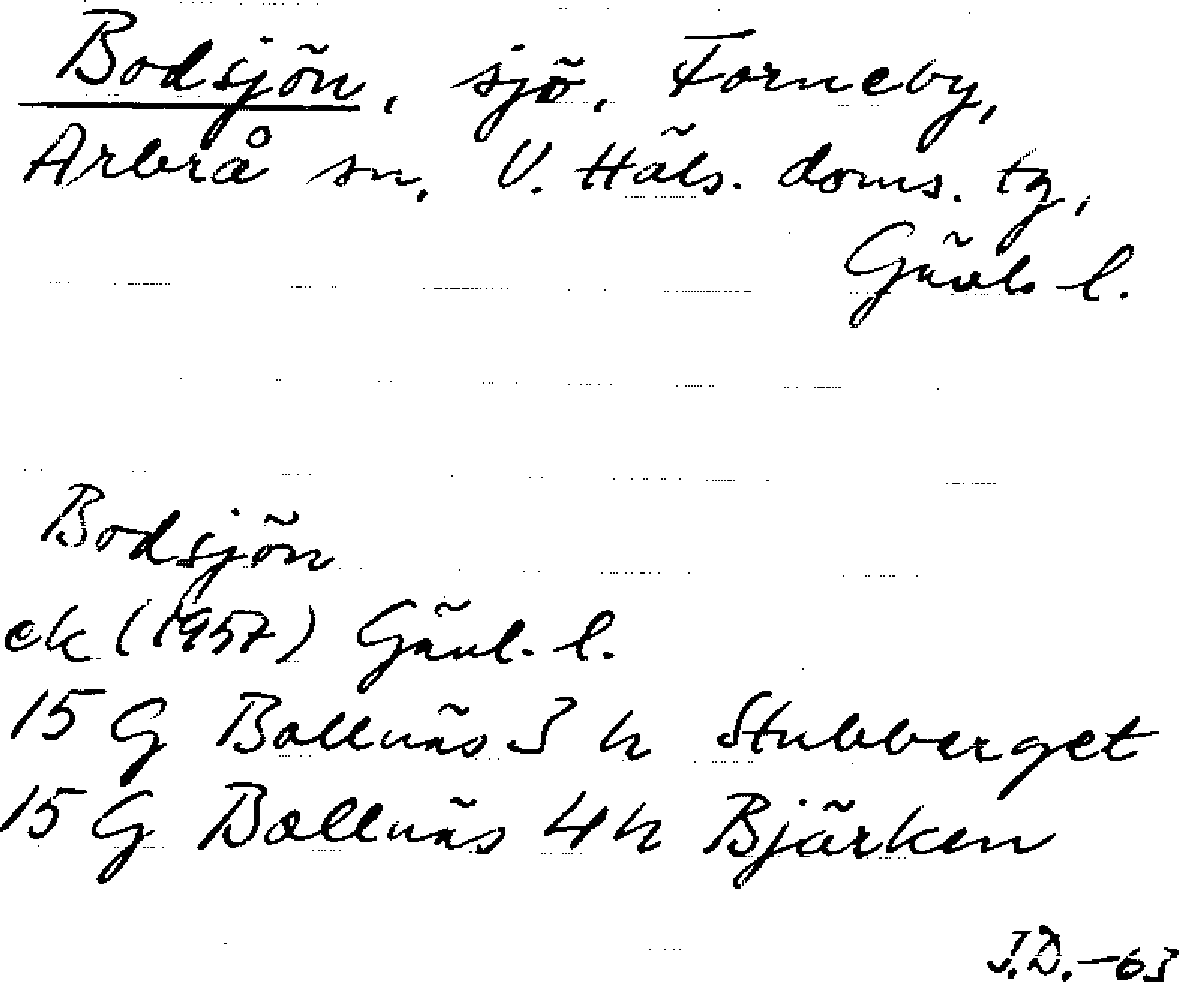 Bodsjön, sjö, Forneby,
Arbrå sn, V. Häls. doms. tg,
Gävleb. l.
Bodsjön
ek (1957) Gävl. l.
15 G Bollnäs 3 h Stubberget
15 G Bollnäs 4 h Bjärken
J.D.-63